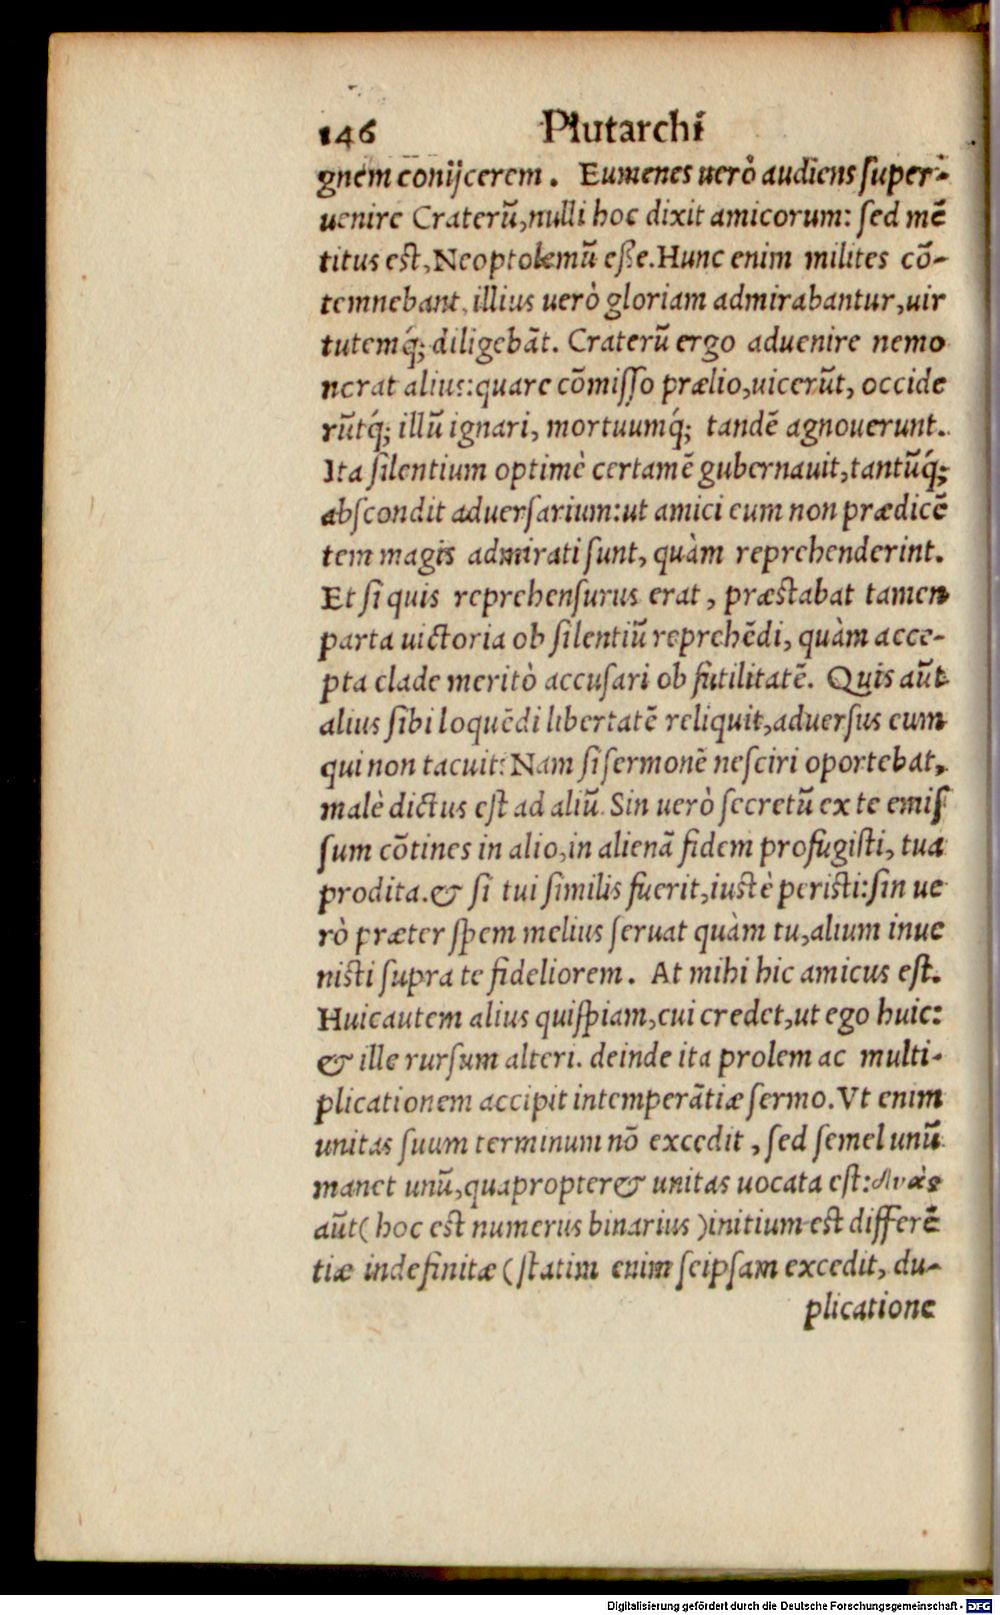 146 Plutarchi
gnem conijcerem. Eumenes uerò audiens super-
uenire Craterũ, nulli hoc dixit amicorum: sed mẽ
titus est, Neoptolemũ esse. Hunc enim milites cõ-
temnebant, illius uerò gloriam admirabantur, uir
tutemq́; diligebãt. Craterũ ergo aduenire nemo
nerat alius: quare cõmisso prælio, uicerũt, occide
rũtq́; illũ ignari, mortuumq́; tandẽ agnouerunt.
Ita silentium optimè certamẽ gubernauit, tantũq́;
abscondit aduersarium: ut amici eum non prædicẽ
tem magis admirati sunt, quàm reprehenderint.
Et si quis reprehensurus erat, præstabat tamen
parta uictoria ob silentiũ reprehẽdi, quàm acce-
pta clade meritò accusari ob futilitatẽ. Quis aũt
alius sibi loquẽdi libertatẽ reliquit, aduersus eum
qui non tacuit: Nam si sermonẽ nesciri oportebat,
malè dictus est ad aliũ. Sin uerò secretũ ex te emis
sum cõtines in alio, in alienã fidem profugisti, tua
prodita. & si tui similis fuerit, iustè peristi: sin ue
rò præter spem melius seruat quàm tu, alium inue
nisti supra te fideliorem. At mihi hic amicus est.
Huic autem alius quispiam, cui credet, ut ego huic:
& ille rursum alteri. deinde ita prolem ac multi-
plicationem accipit intemperãtiæ sermo. Vt enim
unitas suum terminum nõ excedit, sed semel unũ
manet unũ, quapropter & unitas uocata est: δυὰς
aũt (hoc est numerus binarius) initium est differẽ
tiæ indefinitæ (statim enim seipsam excedit, du-
plicatione
Digitalisierung gefördert durch die Deutsche Forschungsgemeinschaft - DFG